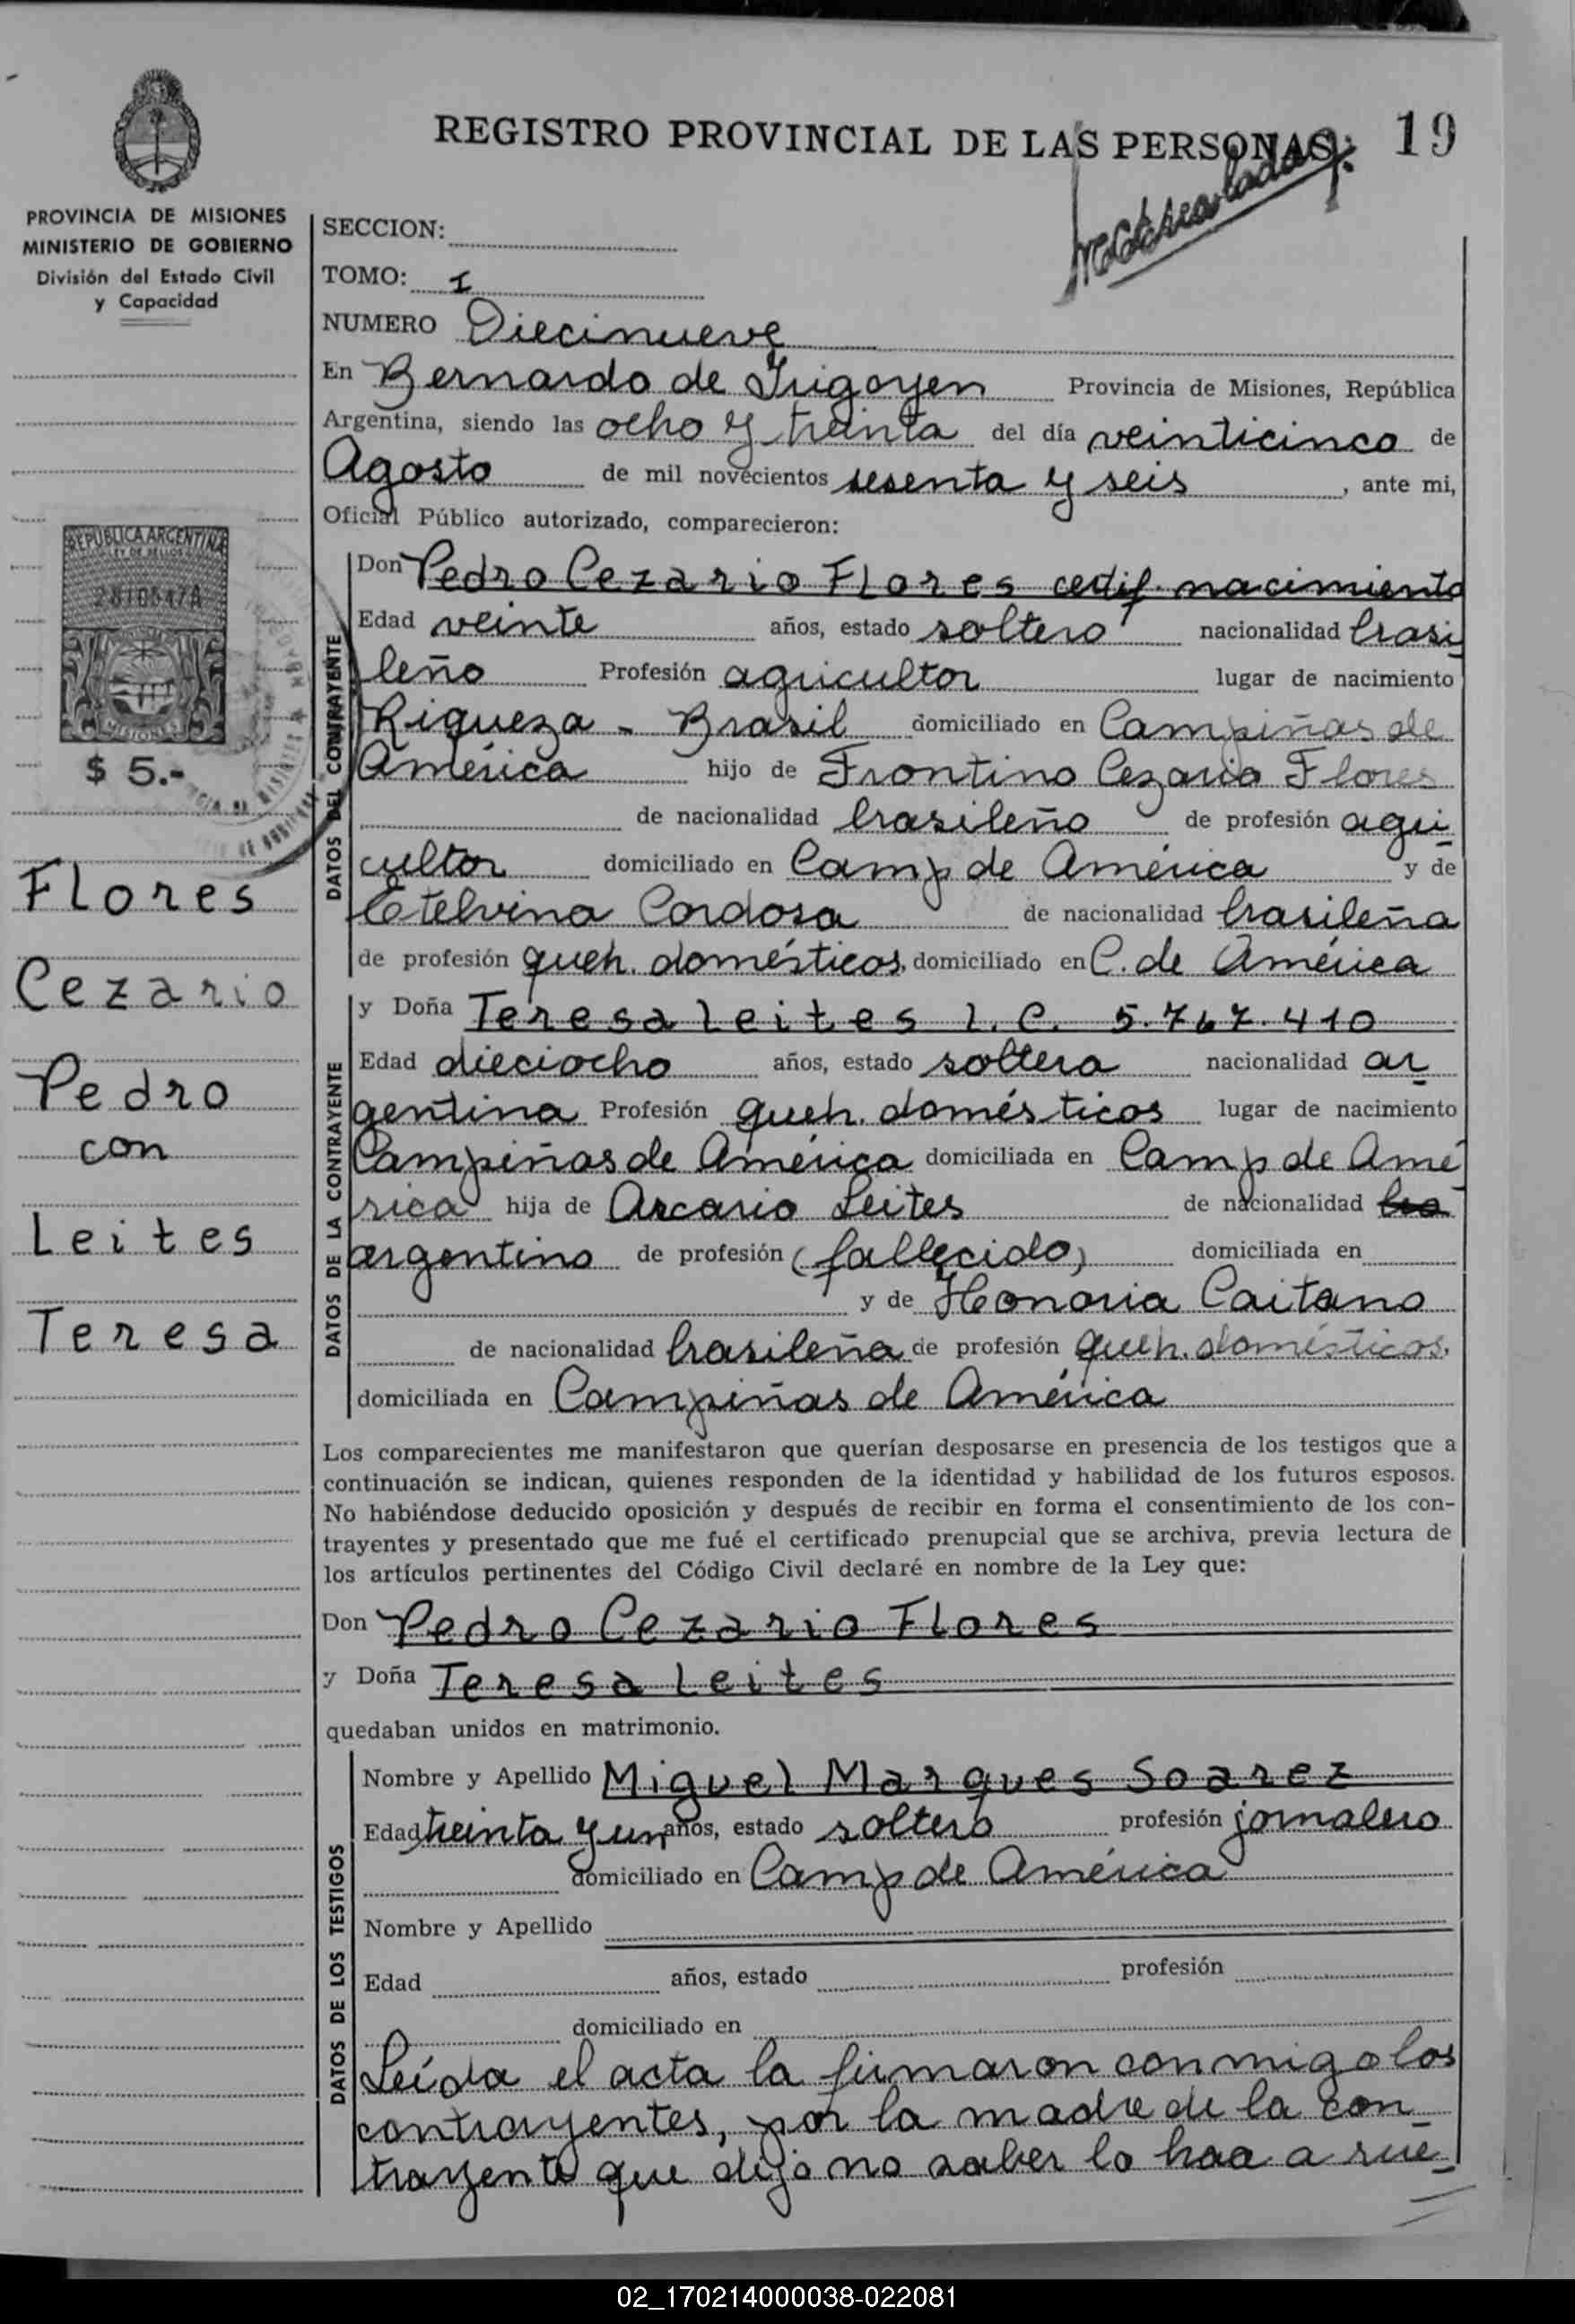 REGISTRO PROVINCIAL DE LAS PERSONAS. 19
PROVINCIA DE MISIONES
MINISTERIO DE GOBIERNO
División del Estado Civil
y Capacidad
SECCION:
TOMO: I
NUMERO Diecinueve
En Bernardo de Irigoyen Provincia de Misiones, República
Argentina, siendo las ocho y treinta del día veinticinco de
Agosto de mil novecientos sesenta y seis, ante mi,
Oficial Público autorizado, comparecieron:
REPUBLICA ARGENTINA
LEY DE SELLOS
MISIONES
$ 5.-
Flores
Cezario
Pedro
con
Leites
Teresa
DATOS DEL CONTRAYENTE
Don Pedro Cezario Flores certif. nacimiento
Edad veinte años, estado soltero nacionalidad brasi
leño Profesión agricultor lugar de nacimiento
Riqueza - Brasil domiciliado en Campiñas de
América hijo de Frontino Cezario Flores
de nacionalidad brasileño de profesión agri
cultor domiciliado en Camp de América y de
Etelvina Cordosa de nacionalidad brasileña
de profesión queh. domésticos, domiciliado en C. de América
DATOS DE LA CONTRAYENTE
y Doña Teresa Leites L. C. 5.767.410
Edad dieciocho años, estado soltera nacionalidad ar
gentina Profesión queh. domésticos lugar de nacimiento
Campiñas de América domiciliada en Camp de Amé
rica hija de Arcario Leites de nacionalidad bra
argentino de profesión (fallecido) domiciliada en
y de Honoria Caitano
de nacionalidad brasileña de profesión queh. domésticos,
domiciliada en Campiñas de América
Los comparecientes me manifestaron que querían desposarse en presencia de los testigos que a
continuación se indican, quienes responden de la identidad y habilidad de los futuros esposos.
No habiéndose deducido oposición y después de recibir en forma el consentimiento de los con-
trayentes y presentado que me fué el certificado prenupcial que se archiva, previa lectura de
los artículos pertinentes del Código Civil declaré en nombre de la Ley que:
Don Pedro Cezario Flores
y Doña Teresa Leites
quedaban unidos en matrimonio.
DATOS DE LOS TESTIGOS
Nombre y Apellido Miguel Marques Soarez
Edad treinta y un años, estado soltero profesión jornalero
domiciliado en Camp de América
Nombre y Apellido
Edad años, estado profesión
domiciliado en
Leída el acta la firmaron conmigo los
contrayentes, por la madre de la con
trayente que dijo no saber lo hac a rue
02_170214000038-022081